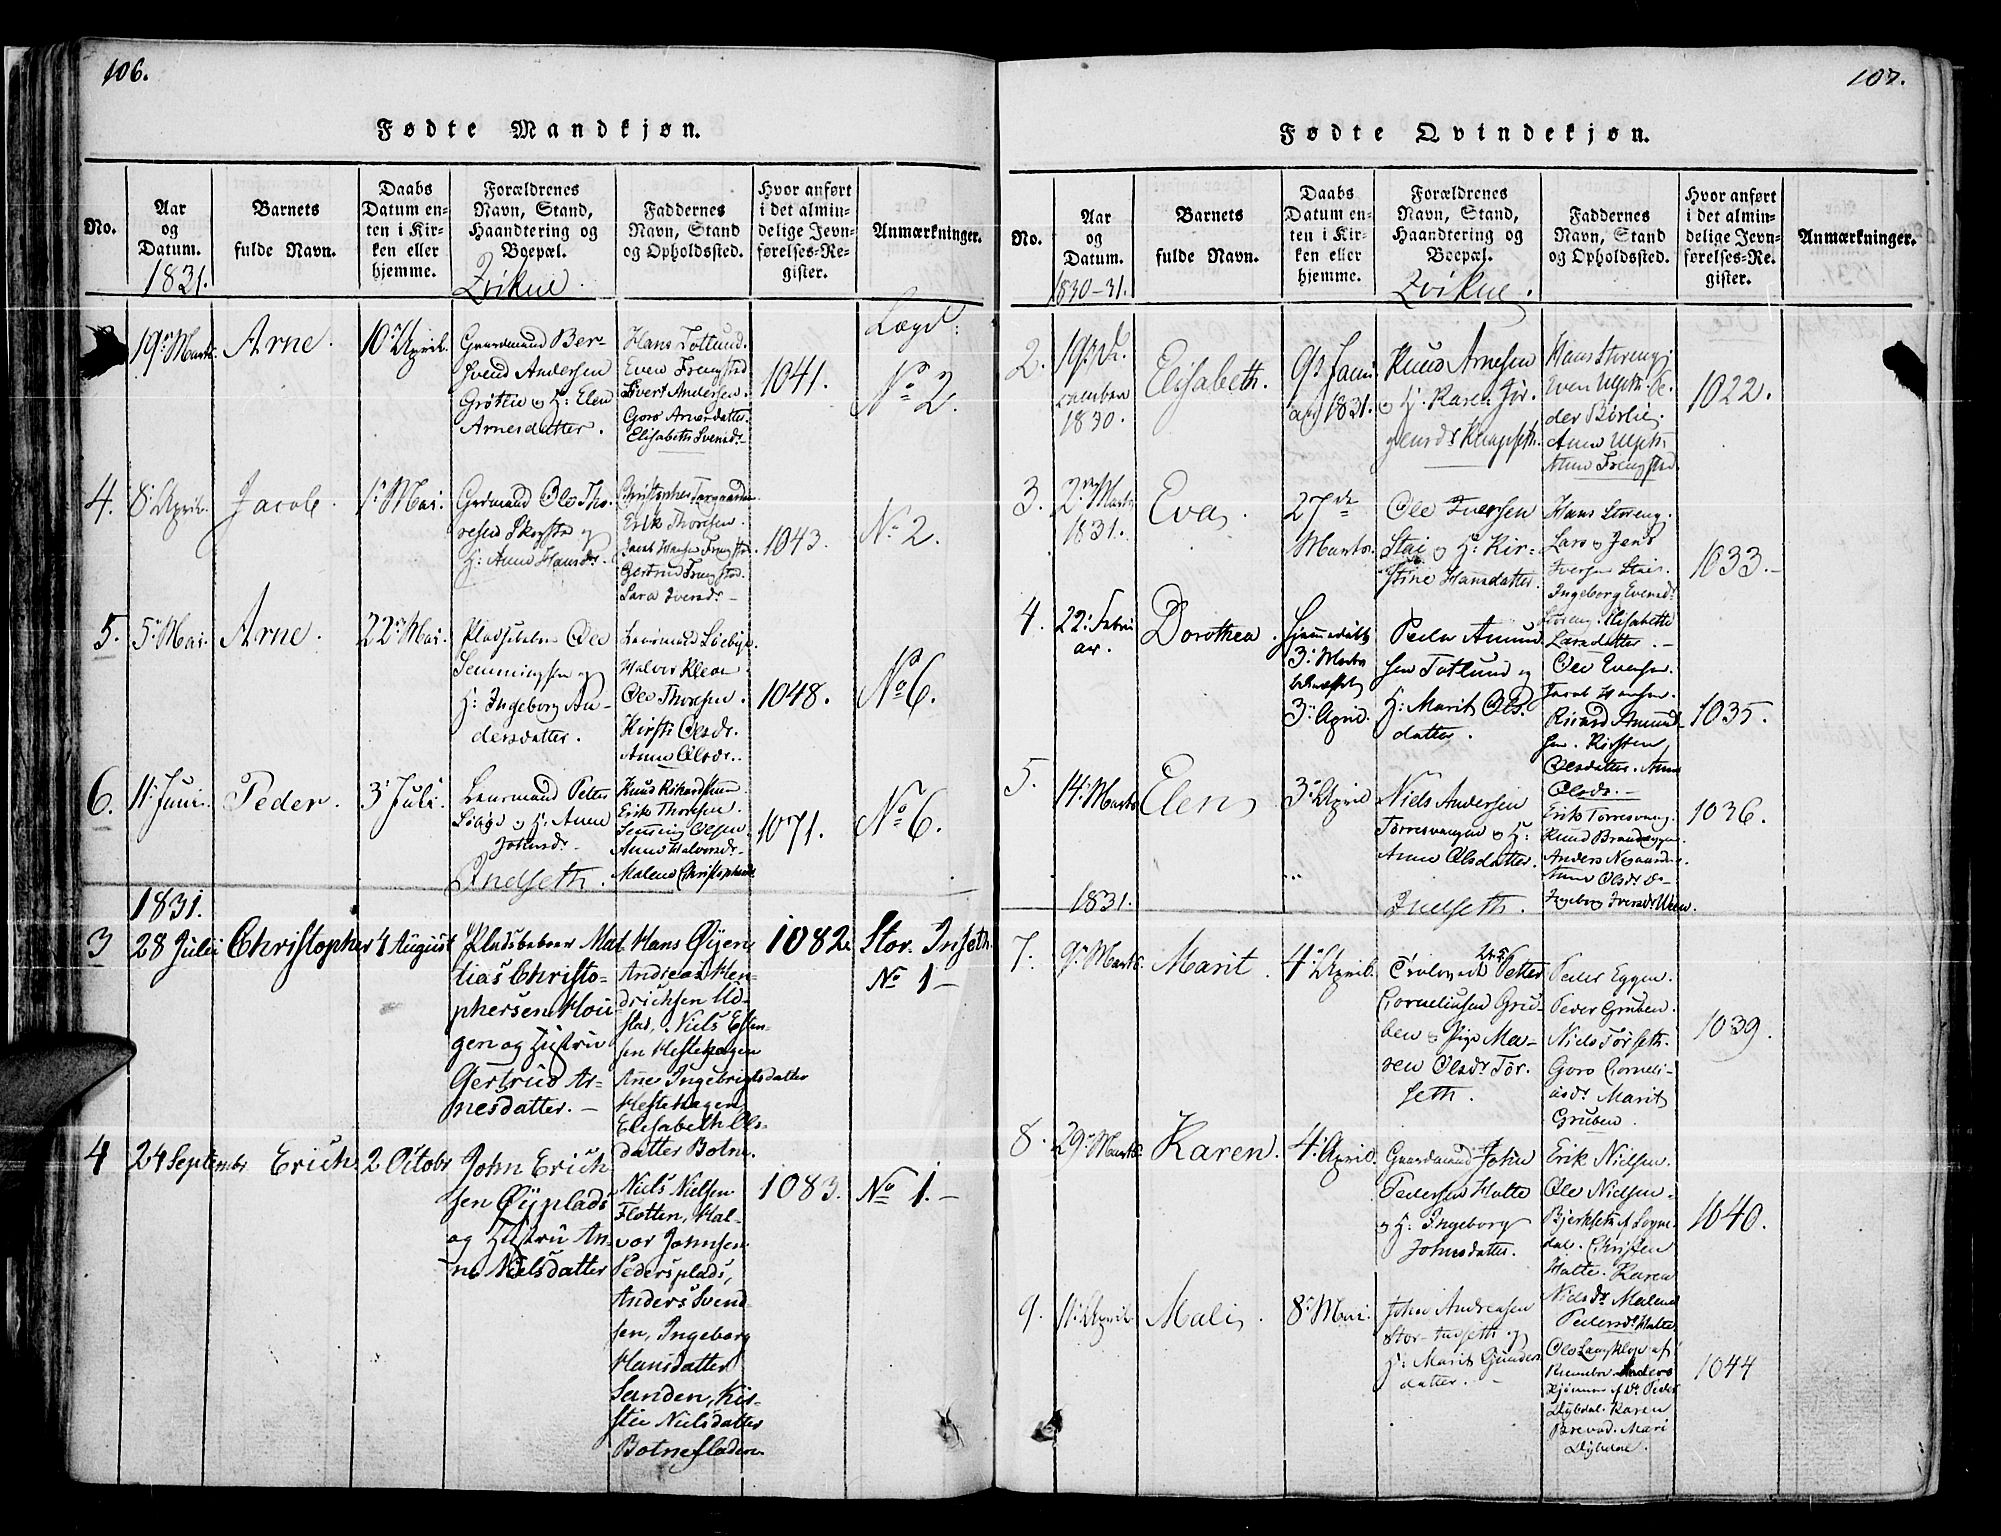 106.
Fødte Mandkjøn.
No.
Aar
og
Datum.
1831.
Barnets
fulde Navn.
Daabs
Datum en-
ten i Kir-
ken eller
hjemme.
Forældrenes
Navn, Stand,
Haandtering og
Boepæl.
Qvikne.
Faddernes
Navn, Stand
og Opholdssted.
Hvor anført
i det almin-
delige Jevn-
førelses-Re-
gister.
Anmærkninger.
Lægd:
19de Marts.
Arne.
10de April.
Gaardmand Ber-
svend Andersen
Grøtlie og H: Elen
Arnesdatter.
Hans Totlund.
Even Frengstad
Sivert Andersen.
Goro Arnesdatter.
Elisabeth Svensdr.
1041.
No 2.
4.
8: April.
Jacob.
1: Mai.
Grdmand Ole Tho-
resen
H: Anne Hansdr.
Erik Thoresen.
Jacob Hansen Frengstad
Gertrud Frengstad.
Sara Iversdr.
1043.
No. 2.
5.
5: Mai.
Arne.
22: Mai.
Ole
Semmingsen og
H: Ingeborg An-
dersdatter.
Halvor
Ole Thoresen.
Kirsti Olsdr.
Anne Olsdr.
1048.
No 6.
6.
11: Juni.
Peder.
3: Juli.
Petter
og H: Anne
Johnsdr.
Knud
Erik Thoresen.
Semming Olsen.
Anne Halvorsdr.
Malene Christophersdr
1071.
No 6.
Indseth.
1831.
3
28 Julii
Christopher
4 August
Pladsbeboer Mat-
tias Christo-
phersen Hou-
gen og Hustru
Gertrud Ar-
nesdatter.
Hans Øyen
Andreas Hen-
drichsen Ud-
stad, Niels Esten-
sen Hestehagen
Ane Ingebrigtsdatter
Hestehagen,
Elisabeth Ols-
datter Botne.
1082.
Stor. Inseth.
No 1
4
24 Septembr
Erich
2 Octobr
John Erich-
sen Øyplads
og Hustru An-
ne Nielsdatter
Niels Nielsen
Flotten, Hal-
vor Johnsen
Pedersplads,
Anders Svend-
sen, Ingeborg
Hansdatter
Sanden, Kir-
stie Nielsdatter
Botnefladen.
1083.
No 1.
107.
Fødte Qvindekjøn.
No.
Aar
og
Datum.
1830-31.
Barnets
fulde Navn.
Daabs
Datum en-
ten i Kir-
ken eller
hjemme.
Forældrenes
Navn, Stand,
Haandtering og
Boepæl.
Qvikne.
Faddernes
Navn, Stand
og Opholdssted.
Hvor anført
i det almin-
delige Jevn-
førelses-Re-
gister.
Anmærkninger.
2.
19de De-
cember
1830.
Elisabeth.
9de Janu-
ar 1831.
Knud Arnesen
og H. Karen Jør-
gensdr
Hans Storeng.
1022.
3.
2den Marts
1831.
Eva.
27de
Marts.
Ole Iversen
Stai og H: Kir-
stine Hansdatter.
Hans Storeng.
Lars og Jens
Iversen Stai.
Ingeborg Evensdr
Storeng. Elisabeth
Larsdatter.
1033.
4.
22: Febru-
ar.
Dorothea.
Hjemmedøbt
3: Marts
3: April.
Peder Amund-
sen Totlund og
H: Marit Ols-
datter.
Ole Evensen.
Jacob Hansen.
Amund-
sen. Kirsten
Olsdatter. Anne
Olsdr.
1035.
5.
14: Marts
Elen
3: April
Niels Andersen
Torresvangen og H:
Anne Olsdatter.
Erik Torresvang.
Knud
Anders
Anne Olsdr
Ingeborg Iversdr
1036.
1831.
Indseth.
7.
9: Marts.
Marit.
4: April.
Petter
Corneliusen Gru-
ben og Pige Ma-
ren Olsdr Tør-
seth.
Peder Eggen.
Peder Gruben.
Niels Tørseth.
Goro Corneli-
usdr Marit
Gruben.
1039.
8.
29: Marts.
Karen.
4: April.
Gaardmand John
Pedersen Holte
og H: Ingeborg
Johnsdatter.
Erik Nielsen.
Ole Nielsen
Christen
Holte. Karen
Nielsdr Malene
Pedersdr Holte.
1040.
9.
11: April.
Mali
8: Mai.
John Andreasen
Stor-Indseth og
H: Marit Gunders-
datter.
Ole Langklop af
Anders
Peder
Karen
Mari
1044